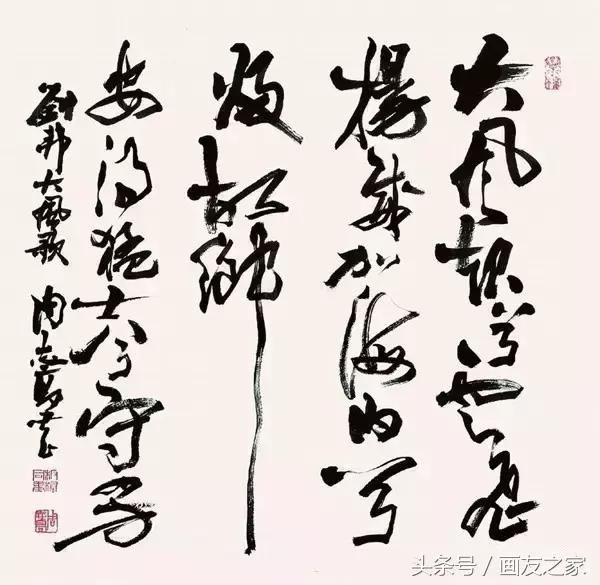 大風起兮雲飛
揚威加海內兮
歸故鄉
安得猛士兮守四方
劉邦大風歌 周志高書
头条号 / 画友之家